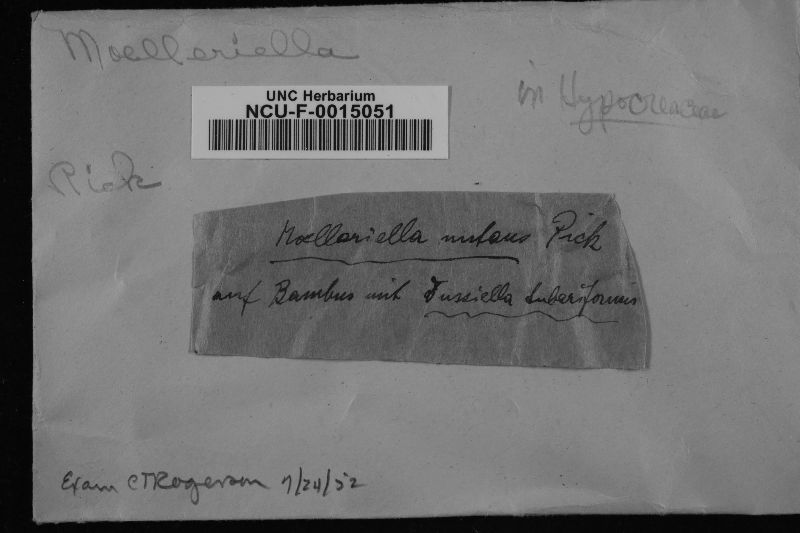 Moelleriella
in Hypocreaceae
UNC Herbarium
NCU-F-0015051
Rick
Moelleriella nutans Rick
auf Bambus mit Dussiella tuberiformis
Exam CTRogerson 7/24/52